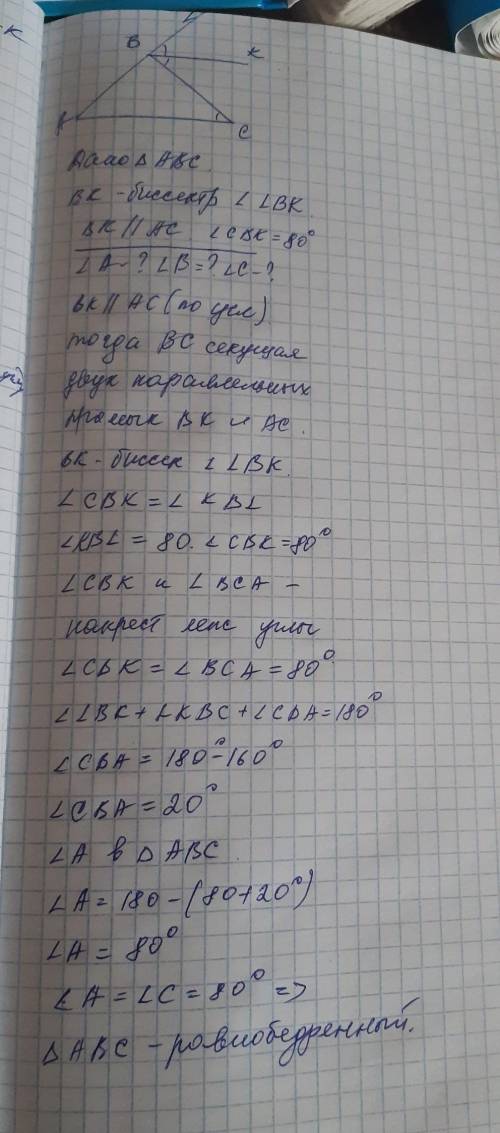 к
L
B
K
A
C
Дано △ABC.
BK - биссектр ∠LBK.
BK // AC ∠CBK = 80°
∠A - ? ∠B = ? ∠C - ?
BK // AC (по усл)
тогда BC секущая
двух параллельных
прямых BK и AC.
BK - биссек ∠LBK.
∠CBK = ∠KBL
∠KBL = 80. ∠CBK = 80°
∠CBK и ∠BCA -
накрест леж углы
∠CBK = ∠BCA = 80°
∠LBK + ∠KBC + ∠CBA = 180°
∠CBA = 180° - 160°
∠CBA = 20°
∠A в △ABC
∠A = 180 - (80 + 20°)
∠A = 80°
∠A = ∠C = 80° =>
△ABC - равнобедренный.